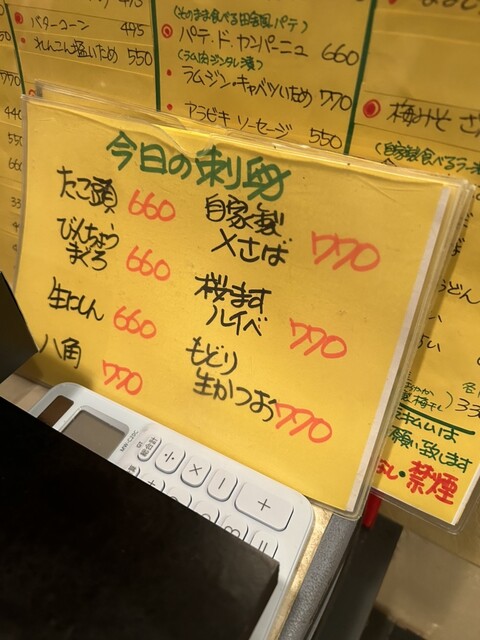 バターコーン 495
れんこん塩いため 550
(そのまま食べる田舎風パテ)
・パテ・ド・カンパーニュ 660
(ラム肉ジンタレ漬)
・ラムジン・キャベツいため 770
・アラビキ ソーセージ 550
今日の刺身
たこ頭 660
びんちょう
まぐろ 660
生にしん 660
八角 770
自家製
〆さば 770
桜ます
ルイベ 770
もどり
生かつお 770
梅みそ
(自家製食べるラー
うどん
願い致します
禁煙
MW-C20C
総合計
÷
×
−
+